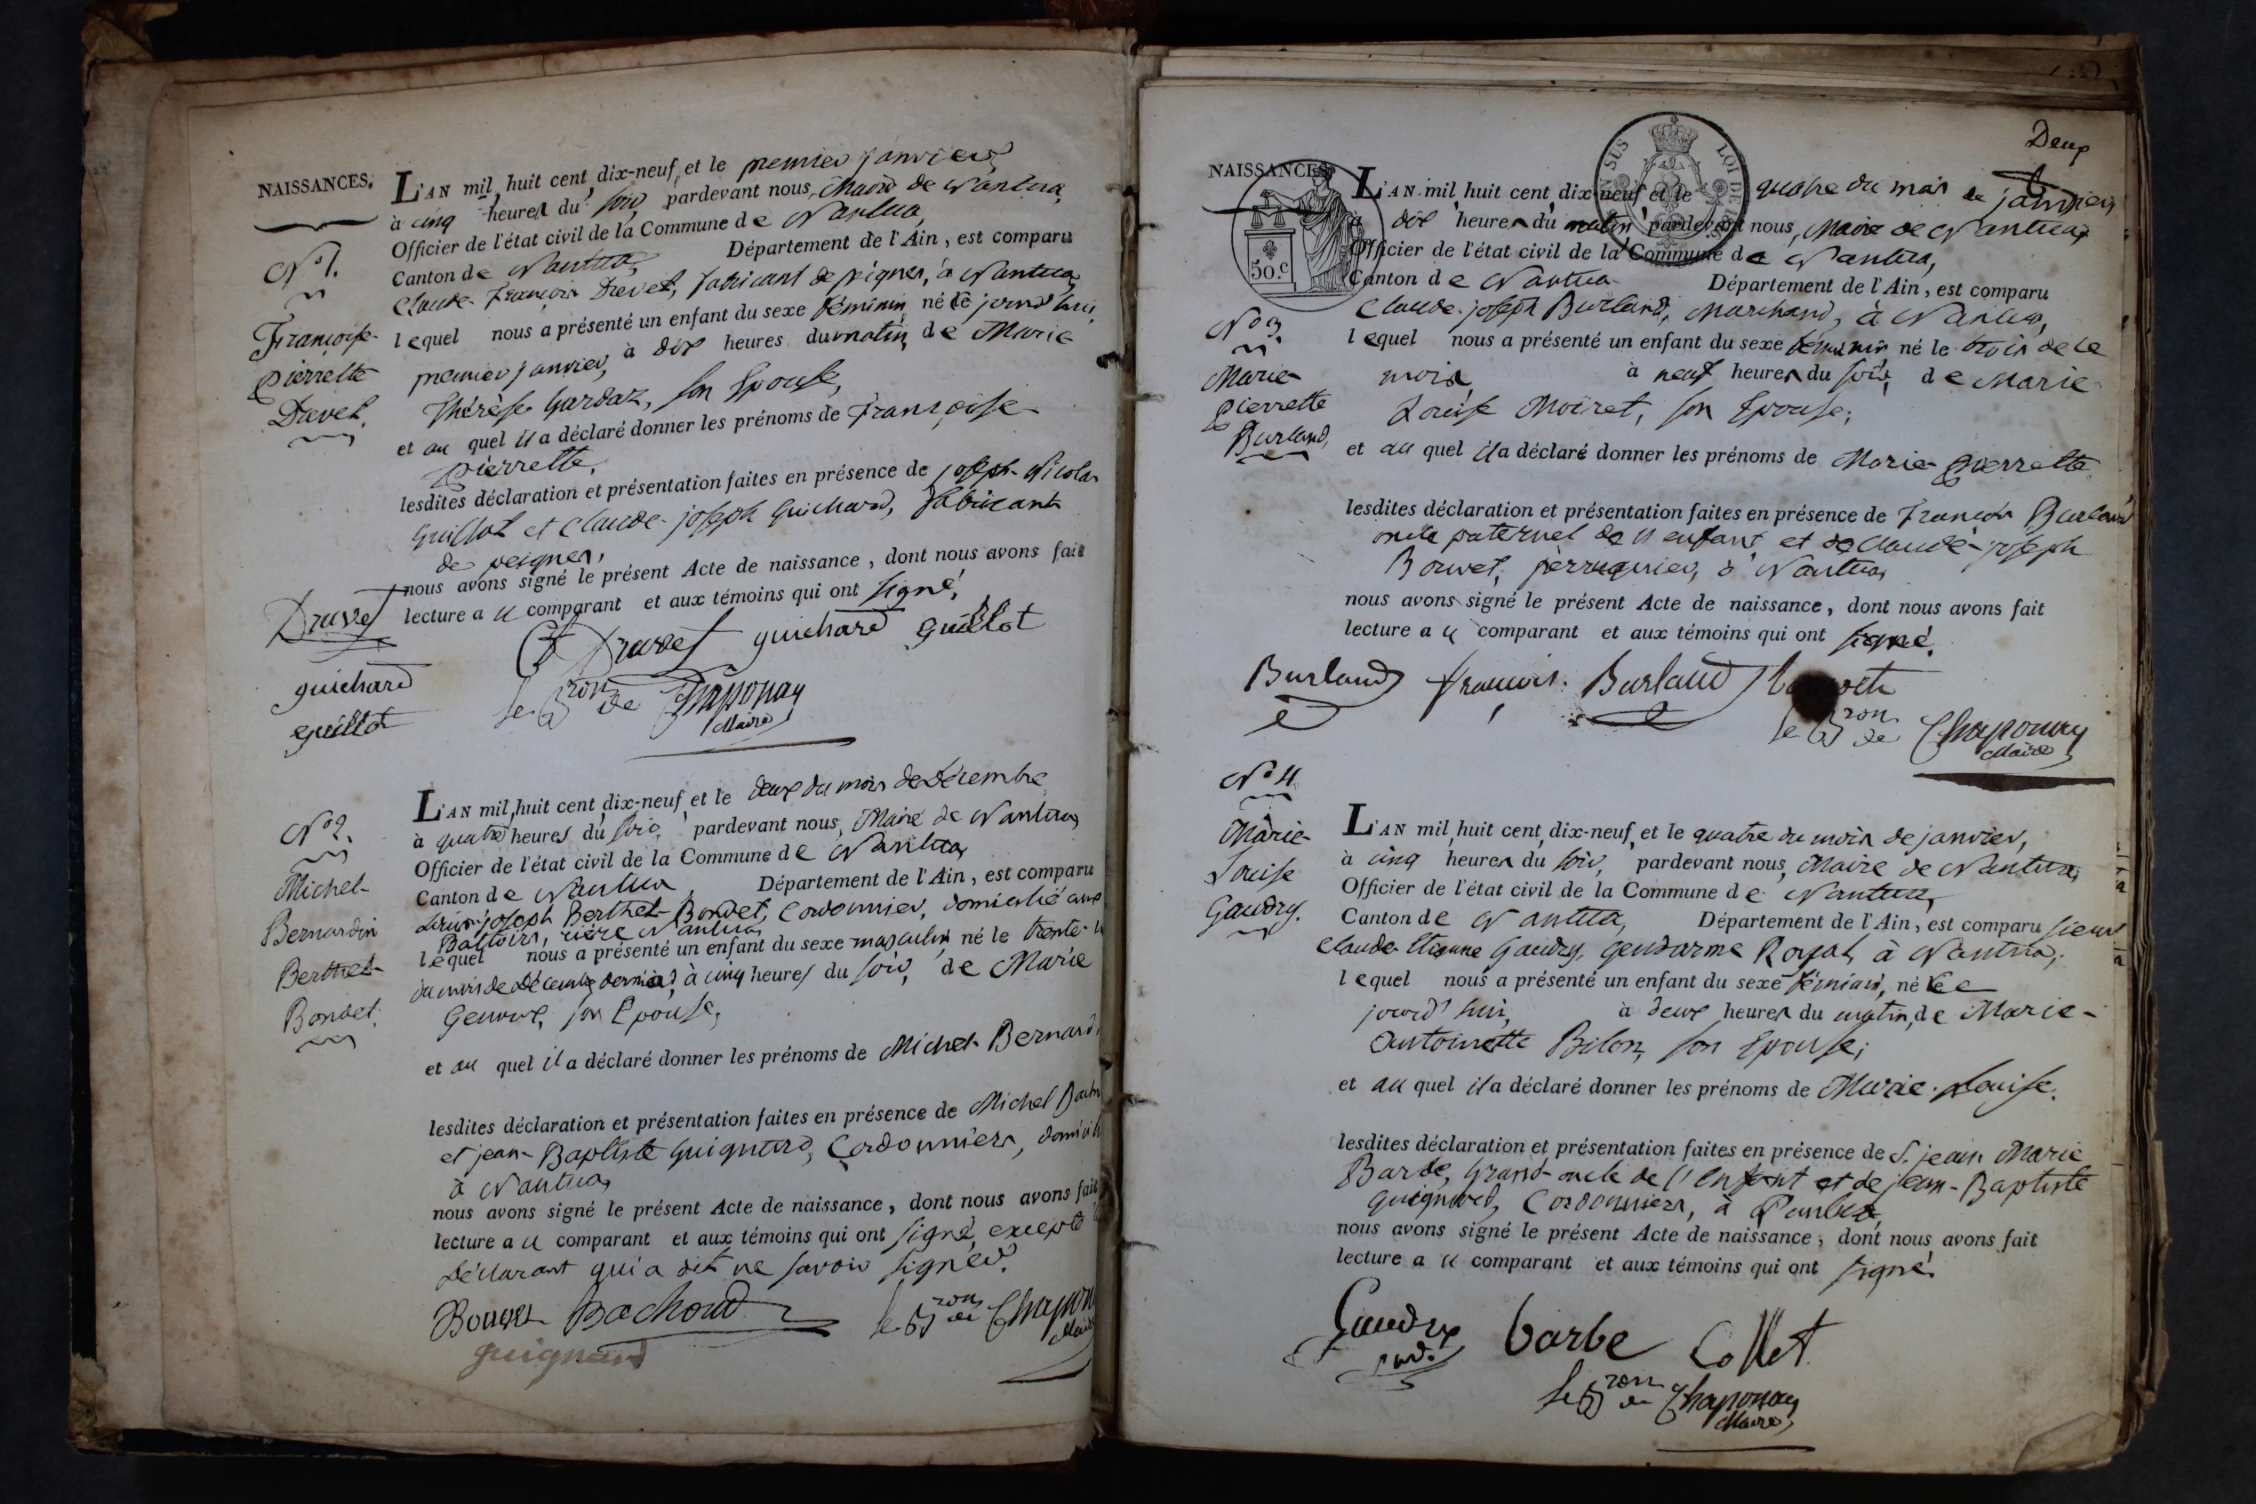 NAISSANCES.
L'AN mil huit cent dix-neuf et le premier janvier
à cinq heures du soir pardevant nous, Maire de Nantua,
Officier de l'état civil de la Commune de Nantua,
Canton de Nantua, Département de l'Ain, est comparu
Claude-François Drevet, fabricant de peignes, à Nantua,
lequel nous a présenté un enfant du sexe féminin, né le jourd'hui,
premier janvier, à dix heures du matin, de Marie
Thérèse Gardaz, son Epouse,
et au quel il a déclaré donner les prénoms de Françoise-
Pierrette.
lesdites déclaration et présentation faites en présence de joseph-Nicolas
Guillot et Claude-joseph Guichard, fabricants
de peignes,
nous avons signé le présent Acte de naissance, dont nous avons fait
lecture au comparant et aux témoins qui ont signé.
No 1.
Françoise-
Pierrette
Drevet.
Druvet
guichard
guillot
Druvet guichard guillot
le Bron de Chaponay
Maire
No 2.
Michel-
Bernardin
Berthet-
Bondet.
L'AN mil huit cent dix-neuf et le deux du mois de Décembre
à quatre heures du soir, pardevant nous, Maire de Nantua,
Officier de l'état civil de la Commune de Nantua,
Canton de Nantua, Département de l'Ain, est comparu
joseph Berthet-Bondet, Cordonnier, domicilié aux
Battoirs, rière Nantua,
lequel nous a présenté un enfant du sexe masculin né le trente-
du mois de Décembre dernier, à cinq heures du soir, de Marie
son Epouse,
et au quel il a déclaré donner les prénoms de Michel-Bernard
lesdites déclaration et présentation faites en présence de Michel
et jean-Baptiste Guignard, Cordonniers,
à Nantua,
nous avons signé le présent Acte de naissance, dont nous avons fait
lecture au comparant et aux témoins qui ont signé, excepté
Déclarant qui a dit ne savoir signer.
Bouvet Bachoud le Bron de Chapon
Maire
guignard
Deux
NAISSANCES
50.c
LOI DE
L'AN mil huit cent dix-neuf et le quatre du mois de janvier
à dix heures du matin pardevant nous, Maire de Nantua,
Officier de l'état civil de la Commune de Nantua,
Canton de Nantua Département de l'Ain, est comparu
Claude-joseph Burland, Marchand, à Nantua,
lequel nous a présenté un enfant du sexe féminin né le trois de ce
mois, à neuf heures du soir, de Marie-
Louise Moiret, son Epouse;
et au quel il a déclaré donner les prénoms de Marie-Pierrette
lesdites déclaration et présentation faites en présence de François Burland
oncle paternel de l'enfant et de Claude-joseph
Bouvet, perruquier, à Nantua,
nous avons signé le présent Acte de naissance, dont nous avons fait
lecture au comparant et aux témoins qui ont signé.
No 3.
Marie-
Pierrette
Burland.
Burland françois Burland
le Bron de Chaponay
Maire
No 4.
Marie-
Louise
Gaudry.
L'AN mil huit cent dix-neuf et le quatre du mois de janvier,
à cinq heures du soir, pardevant nous, Maire de Nantua,
Officier de l'état civil de la Commune de Nantua,
Canton de Nantua, Département de l'Ain, est comparu sieur
Claude-Etienne Gaudry, gendarme Royal, à Nantua,
lequel nous a présenté un enfant du sexe féminin, né le ce
jourd'hui, à deux heures du matin, de Marie-
Antoinette Bilon, son Epouse;
et au quel il a déclaré donner les prénoms de Marie-Louise.
lesdites déclaration et présentation faites en présence de S. jean Marie
Barbe, Grand-oncle de l'enfant et de jean-Baptiste
Cordonniers, à
nous avons signé le présent Acte de naissance, dont nous avons fait
lecture au comparant et aux témoins qui ont signé.
Gaudry barbe Collet
le Bron de Chaponay
Maire